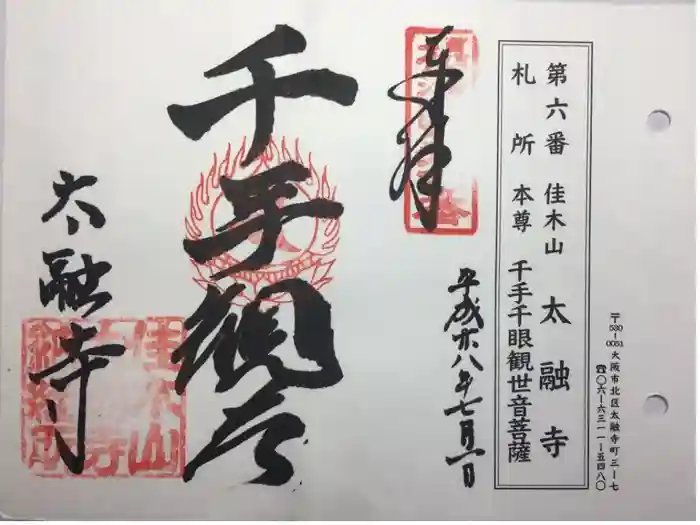 第六番 佳木山 太融寺
札所 本尊 千手千眼観世音菩薩
〒530-0051 大阪市北区太融寺町三ー七
☎〇六ー六三一一ー五四八〇
奉拝
平成廿八年七月一日
千手観音
太融寺
佳木山